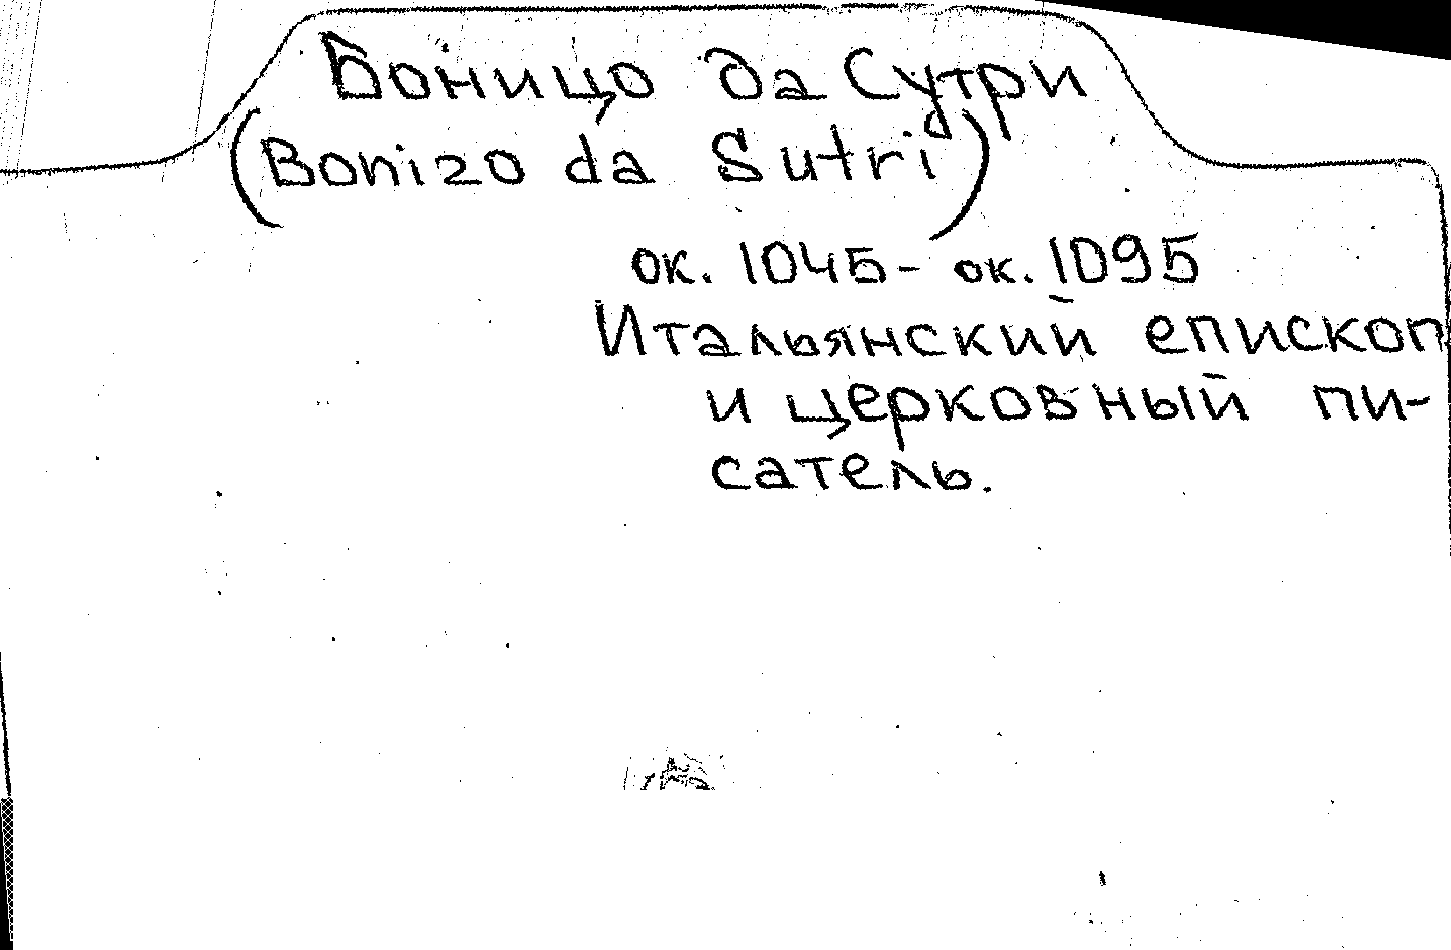 Боницо да Сутри
(Bonizo da Sutri)
ок. 1045 - ок. 1095
Итальянский епископ
и церковный пи-
сатель.